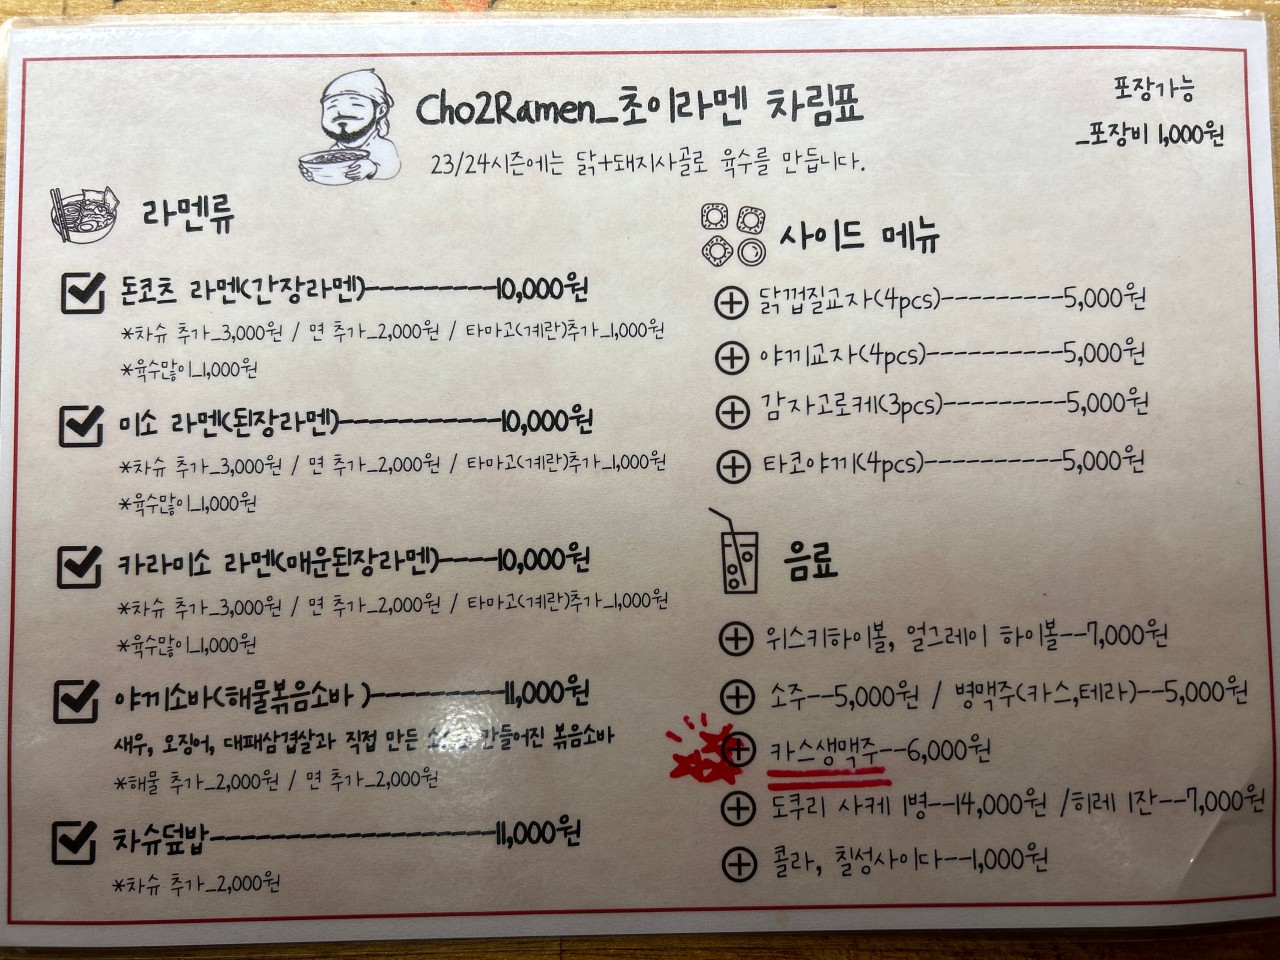 Cho2Ramen_초이라멘 차림표
23/24시즌에는 닭+돼지사골로 육수를 만듭니다.
포장가능
_포장비 1,000원
라멘류
돈코츠 라멘(간장라멘)----------10,000원
*차슈 추가_3,000원 / 면 추가_2,000원 / 타마고(계란)추가_1,000원
*육수많이_1,000원
미소 라멘(된장라멘)------------10,000원
*차슈 추가_3,000원 / 면 추가_2,000원 / 타마고(계란)추가_1,000원
*육수많이_1,000원
카라미소 라멘(매운된장라멘)----10,000원
*차슈 추가_3,000원 / 면 추가_2,000원 / 타마고(계란)추가_1,000원
*육수많이_1,000원
야끼소바(해물볶음소바 )----------11,000원
새우, 오징어, 대패삼겹살과 직접 만든 만들어진 볶음소바
*해물 추가_2,000원 / 면 추가_2,000원
차슈덮밥----------------------11,000원
*차슈 추가_2,000원
사이드 메뉴
닭껍질교자(4pcs)---------5,000원
야끼교자(4pcs)----------5,000원
감자고로케(3pcs)---------5,000원
타코야끼(4pcs)----------5,000원
음료
위스키하이볼, 얼그레이 하이볼--7,000원
소주--5,000원 / 병맥주(카스,테라)--5,000원
카스생맥주--6,000원
도쿠리 사케 1병--14,000원 /히레 1잔--7,000원
콜라, 칠성사이다--1,000원